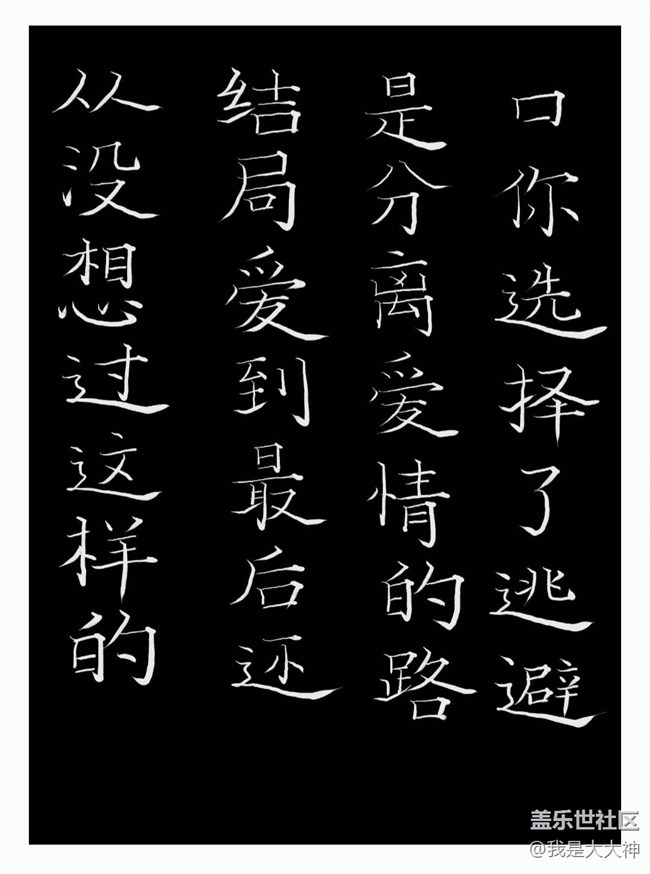 从没想过这样的
结局爱到最后还
是分离爱情的路
口你选择了逃避
盖乐世社区
@我是大大神